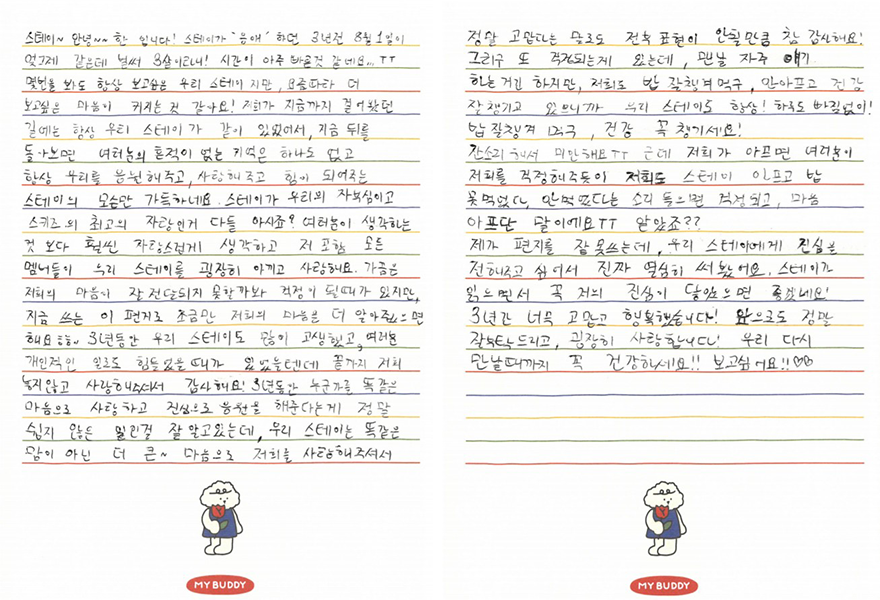 스테이~ 안녕~~ 한 입니다! 스테이가 "응애" 하던 3년전 8월 1일이
엊그제 같은데 벌써 3살이라니! 시간이 아주 빠른것 같네요...ㅠㅠ
몇번을 봐도 항상 보고싶은 우리 스테이지만, 요즘따라 더
보고싶은 마음이 커지는 것 같아요! 저희가 지금까지 걸어왔던
길에는 항상 우리 스테이가 같이 있었어서, 지금 뒤를
돌아보면 여러분의 흔적이 없는 기억은 하나도 없고
항상 우리를 응원해주고, 사랑해주고 힘이 되어주는
스테이의 모습만 가득하네요. 스테이가 우리의 자부심이고
스키즈의 최고의 자랑인거 다들 아시죠? 여러분이 생각하는
것 보다 훨씬 자랑스럽게 생각하고 저 포함 모든
멤버들이 우리 스테이를 굉장히 아끼고 사랑해요. 가끔은
저희의 마음이 잘 전달되지 못할까봐 걱정이 될때가 있지만,
지금 쓰는 이 편지로 조금만 저희의 마음을 더 알아줬으면
해요 ㅎㅎㅎ 3년동안 우리 스테이도 많이 고생했고, 여러분
개인적인 일로도 힘들었을 때가 있었을텐데 끝까지 저희
놓지않고 사랑해주셔서 감사해요! 3년동안 누군가를 똑같은
마음으로 사랑하고 진심으로 응원을 해준다는게 정말
쉽지 않은 일인걸 잘 알고있는데, 우리 스테이는 똑같은
맘이 아닌 더 큰~ 마음으로 저희를 사랑해주셔서
정말 고맙다는 말로도 전혀 표현이 안될만큼 참 감사해요!
그리구 또 걱정되는게 있는데, 맨날 자주 얘기
하는거긴 하지만, 저희도 밥 잘챙겨먹구, 안아프고 건강
잘챙기고 있으니까 우리 스테이도 항상! 하루도 빠짐없이!
밥 잘챙겨 먹구, 건강 꼭 챙기세요!
잔소리해서 미안해요ㅠㅠ 근데 저희가 아프면 여러분이
저희를 걱정해주듯이 저희도 스테이 아프고 밥
못먹었다, 안먹었다는 소리 들으면 걱정되고, 마음
아프단 말이에요ㅠㅠ 알았죠??
제가 편지를 잘 못쓰는데, 우리 스테이에게 진심을
전해주고 싶어서 진짜 열심히 써봤어요. 스테이가
읽으면서 꼭 저의 진심이 닿았으면 좋겠네요!
3년간 너무 고맙고 행복했습니다! 앞으로도 정말
잘부탁드리고, 굉장히 사랑합니다! 우리 다시
만날때까지 꼭 건강하세요!! 보고싶어요!!♡♡
MY BUDDY
MY BUDDY